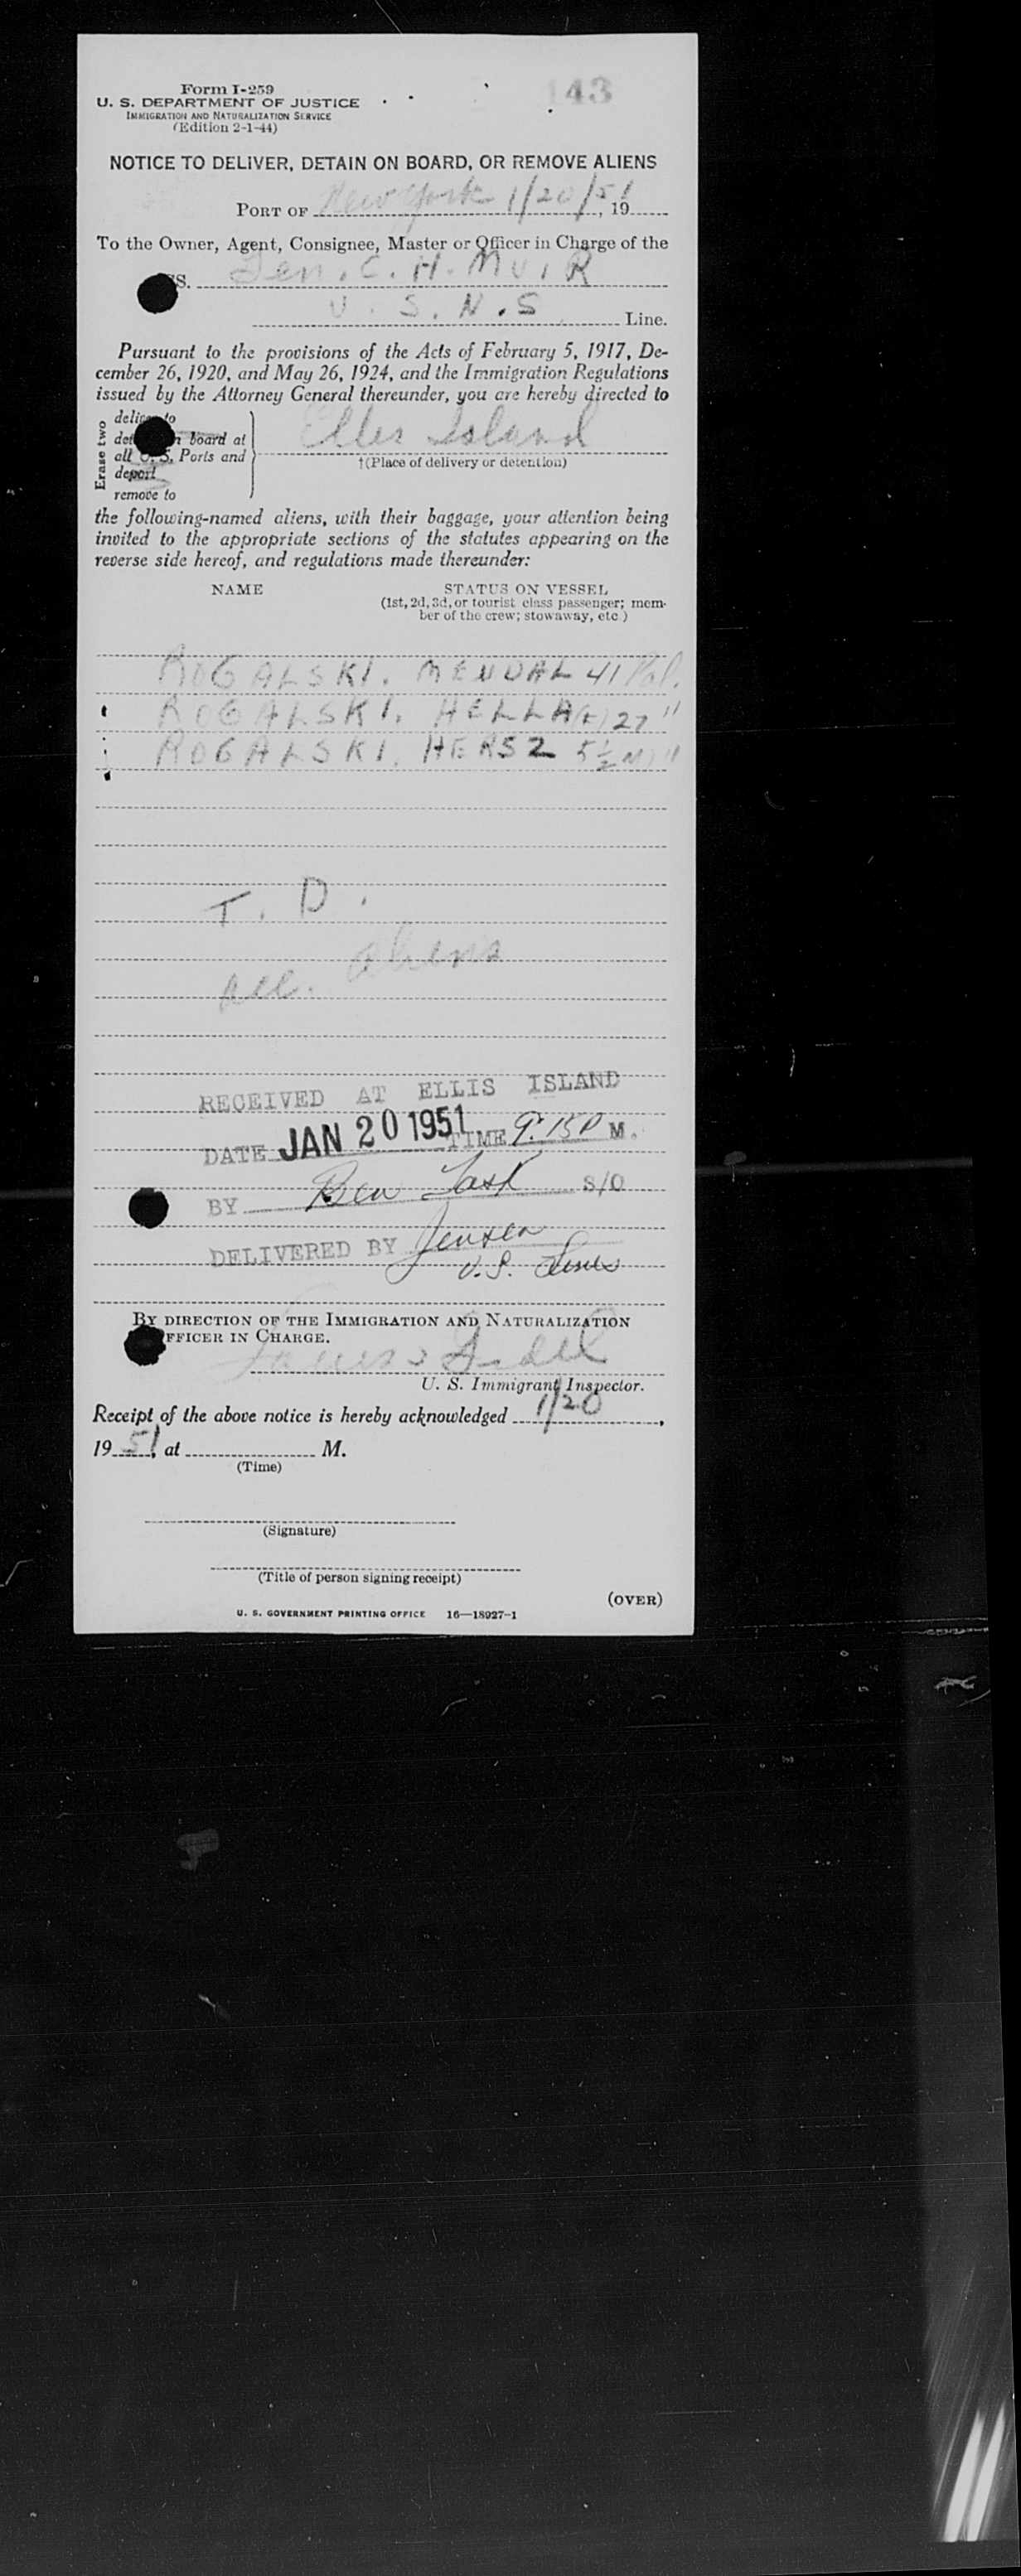 Form I-259
143
U. S. DEPARTMENT OF JUSTICE
IMMIGRATION AND NATURALIZATION SERVICE
(Edition 2-1-44)
NOTICE TO DELIVER, DETAIN ON BOARD, OR REMOVE ALIENS
PORT OF New York 1/20/51, 19
To the Owner, Agent, Consignee, Master or Officer in Charge of the
SS. Gen. C. H. MUIR
U. S. N. S Line.
Pursuant to the provisions of the Acts of February 5, 1917, De-
cember 26, 1920, and May 26, 1924, and the Immigration Regulations
issued by the Attorney General thereunder, you are hereby directed to
Erase two
deliver to
detain on board at
all U. S. Ports and
deport
remove to
Ellis Island
†(Place of delivery or detention)
the following-named aliens, with their baggage, your attention being
invited to the appropriate sections of the statutes appearing on the
reverse side hereof, and regulations made thereunder:
NAME STATUS ON VESSEL
(1st, 2d, 3d, or tourist class passenger; mem-
ber of the crew; stowaway, etc.)
ROGALSKI. MENDAL 41 Pol.
ROGALSKI. HELLA (F) 27 "
ROGALSKI. HERSZ 5½ M) "
T. D.
All. Aliens
RECEIVED AT ELLIS ISLAND
DATE JAN 20 1951 TIME 9:15 P M.
BY Ben S/O
DELIVERED BY Jensen
U.S. Lines
BY DIRECTION OF THE IMMIGRATION AND NATURALIZATION
OFFICER IN CHARGE.
U. S. Immigrant Inspector.
Receipt of the above notice is hereby acknowledged 1/20,
1951, at M.
(Time)
(Signature)
(Title of person signing receipt)
(OVER)
U. S. GOVERNMENT PRINTING OFFICE 16—18927-1